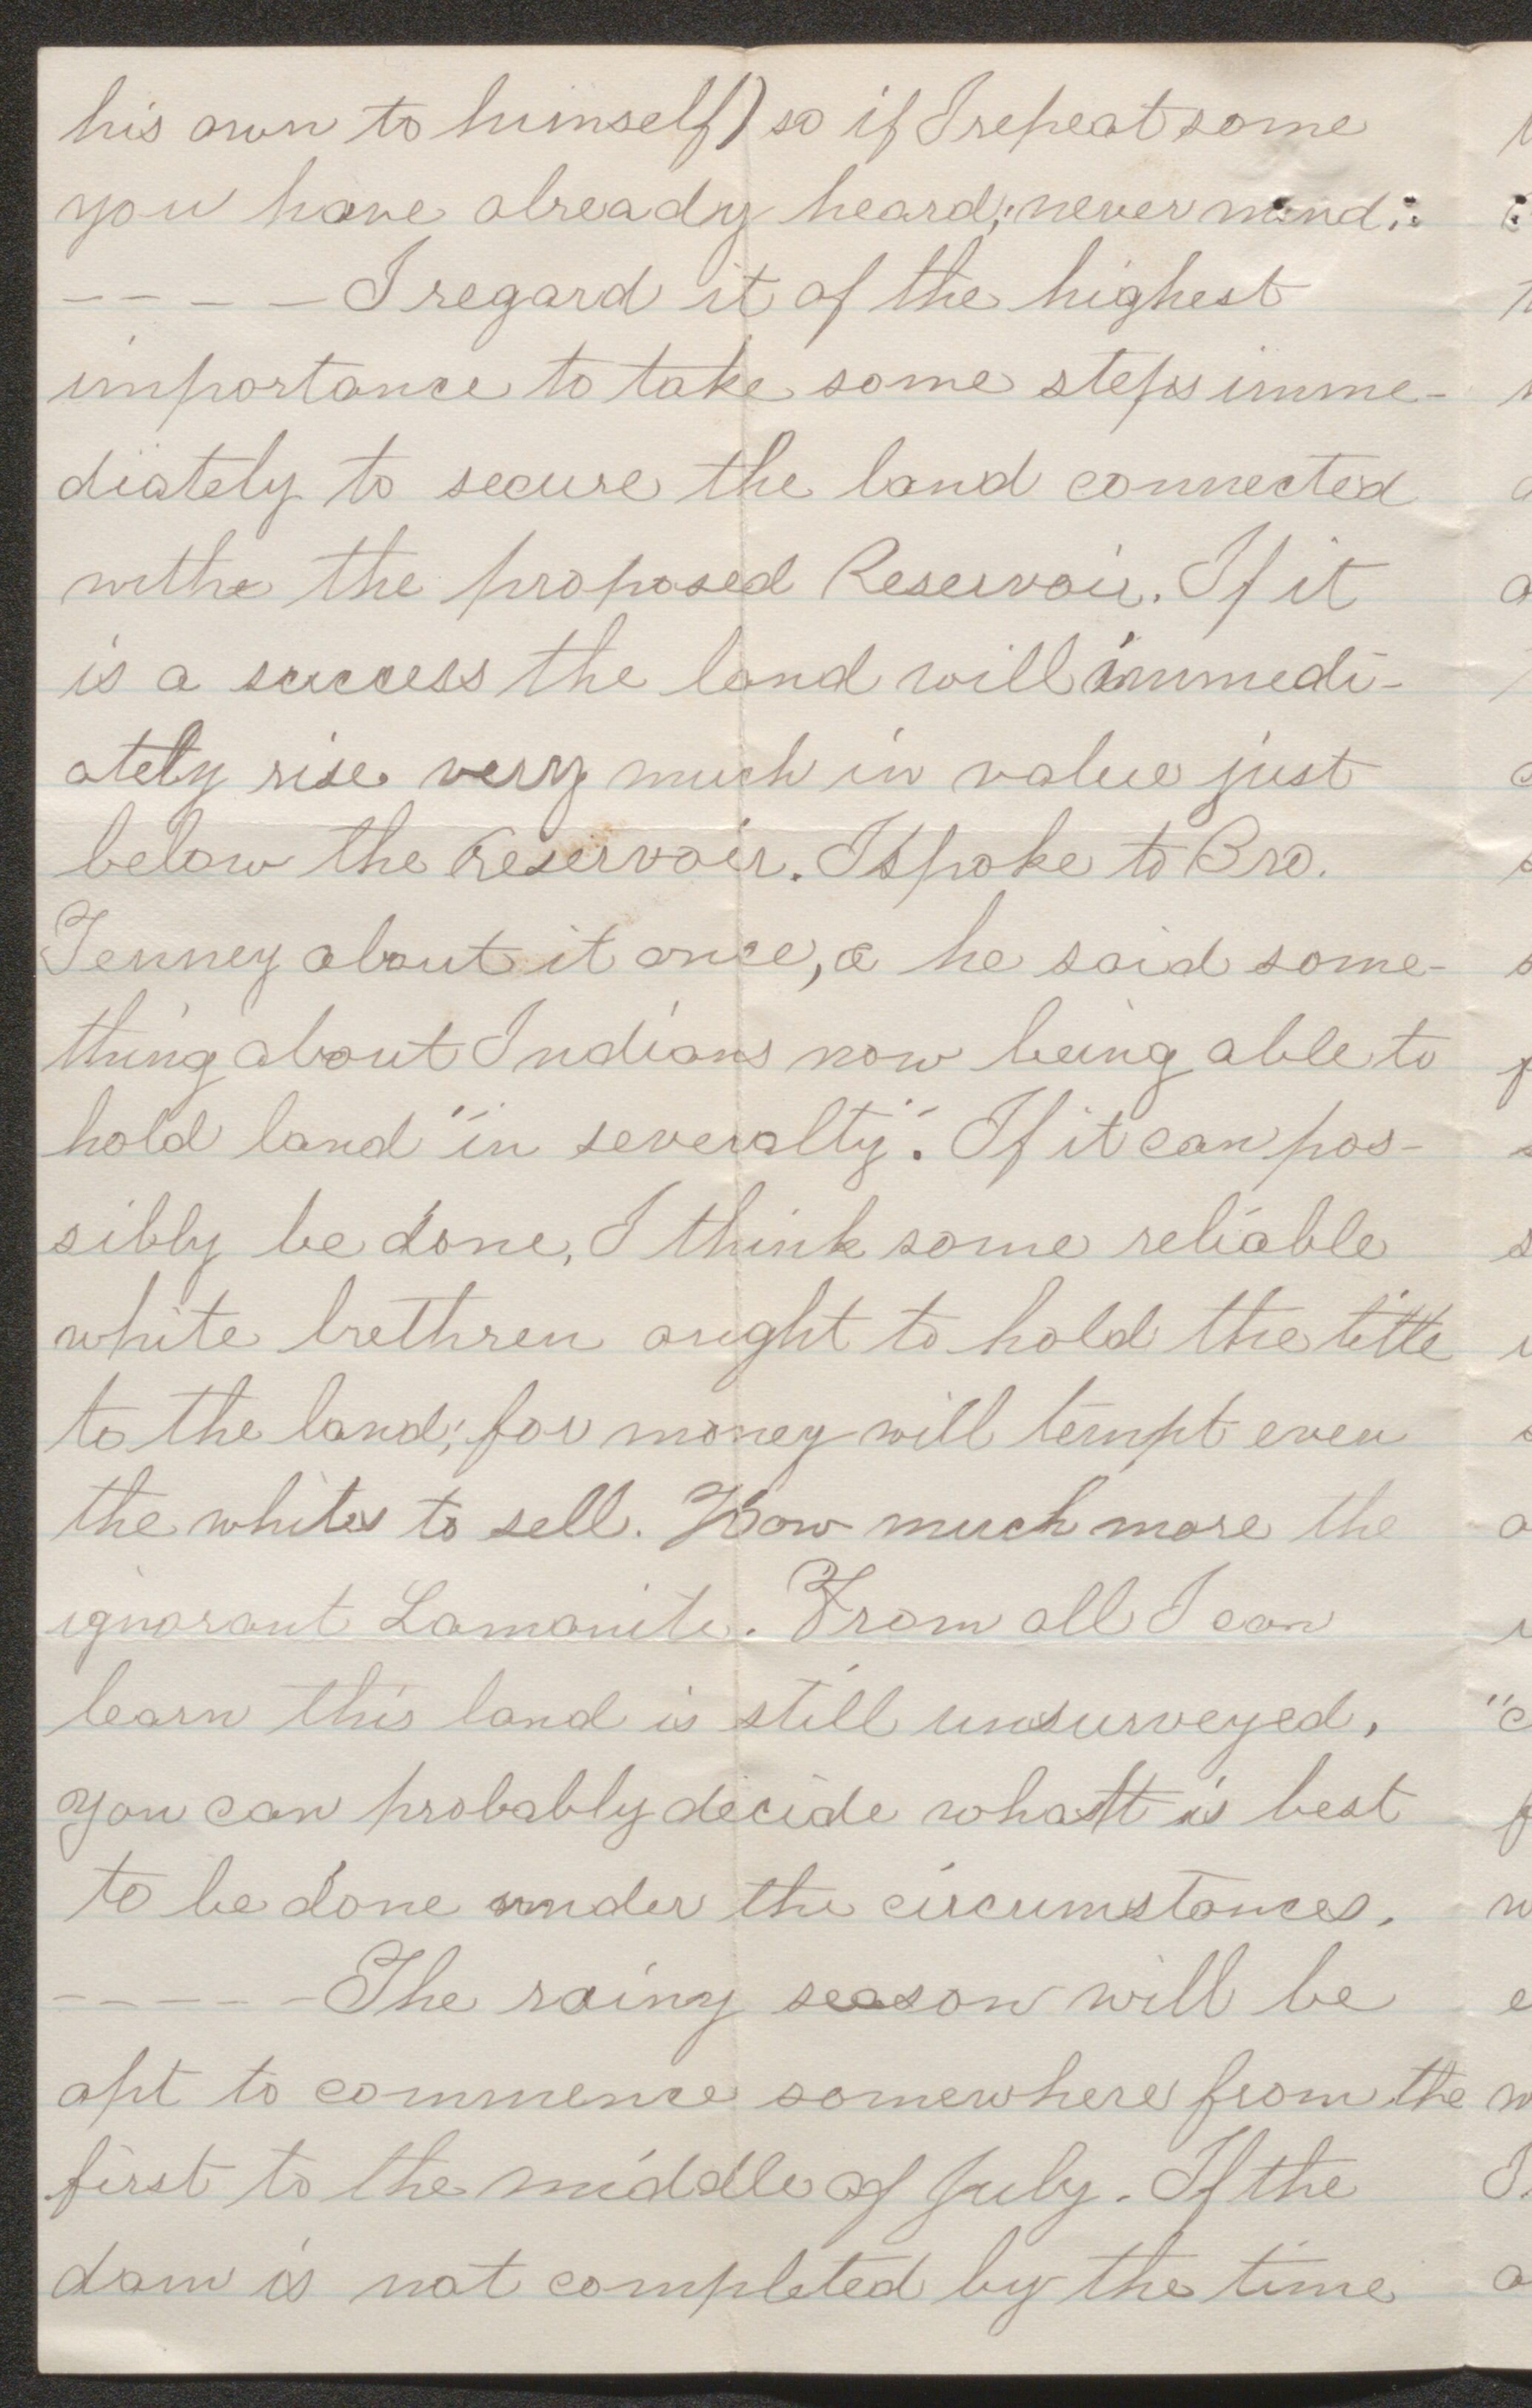 his own to himself) so if I repeat some
you have already heard; never mind.
– – – – I regard it of the highest
importance to take some steps imme-
diately to secure the land connected
withe the proposed Reservoir. If it
is a success the land will immedi-
ately rise very much in value just
below the Reservoir. I spoke to Bro.
Tenney about it once, & he said some-
thing about Indians now being able to
hold land "in severalty". If it can pos-
sibly be done, I think some reliable
white brethren ought to hold the title
to the land; for money will tempt even
the whites to sell. How much more the
ignorant Lamanite. From all I can
learn this land is still unsurveyed,
you can probably decide what is best
to be done under the circumstances.
– – – – – The rainy season will be
apt to commence somewhere from the
first to the middle of July. If the
dam is not completed by the time